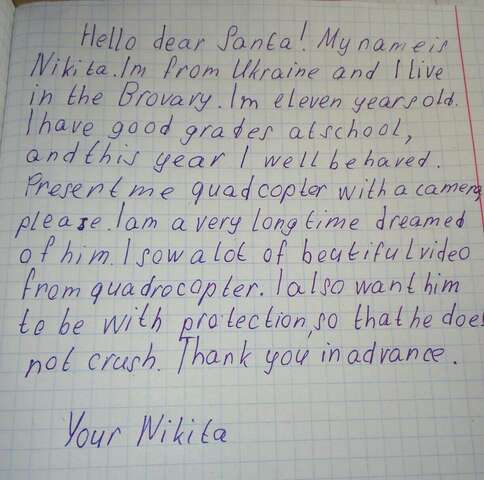 Hello dear Santa! My name is
Nikita. Im from Ukraine and I live
in the Brovary. Im eleven years old.
I have good grades at school,
and this year I well behaved.
Present me quadcopter with a camera
please. I am a very long time dreamed
of him. I sow a lot of beutiful video
from quadrocopter. I also want him
to be with protection, so that he does
not crush. Thank you in advance.
Your Nikita